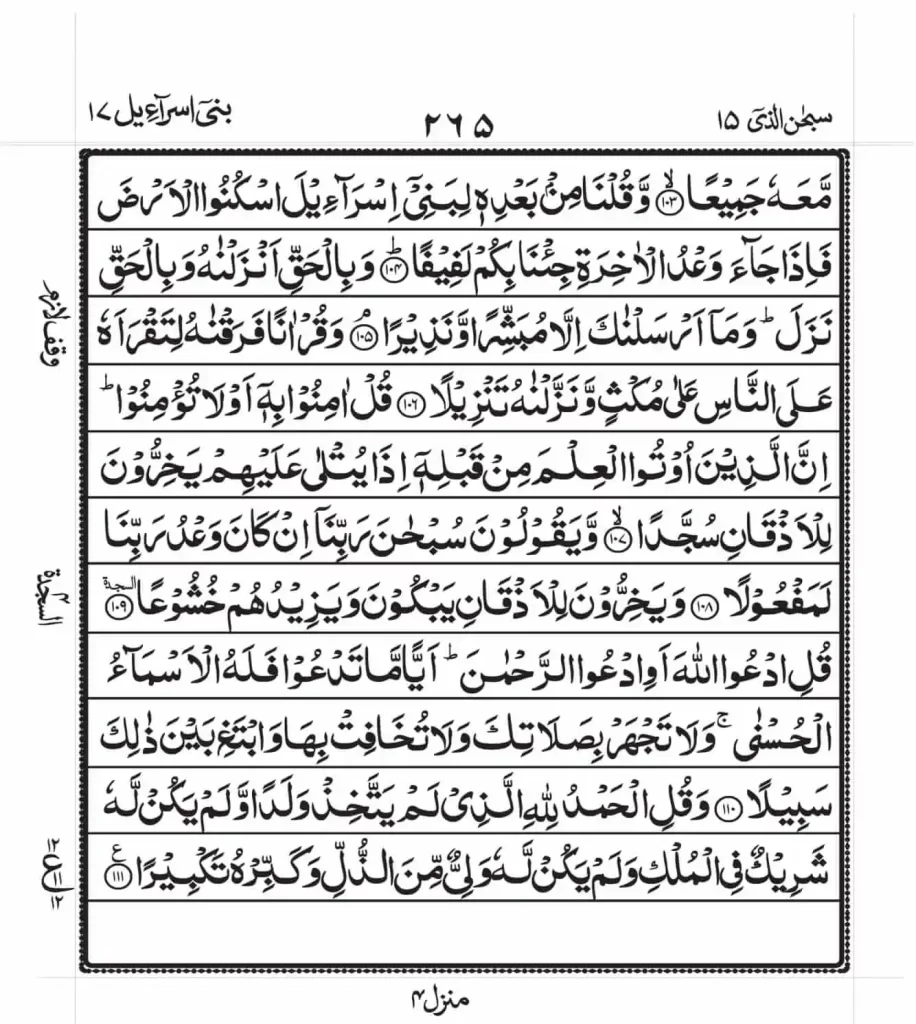 سبحٰن الذی ۱۵
۲۶۵
بنیٓ اسرآءیل ۱۷
مَّعَهٗ جَمِیْعًا ۙ﴿۱۰۳﴾ وَّقُلْنَا مِنْۢ بَعْدِهٖ لِبَنِیْۤ اِسْرَآءِیْلَ اسْكُنُوا الْاَرْضَ
فَاِذَا جَآءَ وَعْدُ الْاٰخِرَةِ جِئْنَا بِكُمْ لَفِیْفًا ؕ﴿۱۰۴﴾ وَبِالْحَقِّ اَنْزَلْنٰهُ وَبِالْحَقِّ
نَزَلَ ؕ وَمَاۤ اَرْسَلْنٰكَ اِلَّا مُبَشِّرًا وَّنَذِیْرًا ۘ﴿۱۰۵﴾ وَقُرْاٰنًا فَرَقْنٰهُ لِتَقْرَاَهٗ
وقف لازم
عَلَی النَّاسِ عَلٰی مُكْثٍ وَّنَزَّلْنٰهُ تَنْزِیْلًا ﴿۱۰۶﴾ قُلْ اٰمِنُوْا بِهٖۤ اَوْ لَا تُؤْمِنُوْا ؕ
اِنَّ الَّذِیْنَ اُوْتُوا الْعِلْمَ مِنْ قَبْلِهٖۤ اِذَا یُتْلٰی عَلَیْهِمْ یَخِرُّوْنَ
لِلْاَذْقَانِ سُجَّدًا ۙ﴿۱۰۷﴾ وَّیَقُوْلُوْنَ سُبْحٰنَ رَبِّنَاۤ اِنْ كَانَ وَعْدُ رَبِّنَا
لَمَفْعُوْلًا ﴿۱۰۸﴾ وَیَخِرُّوْنَ لِلْاَذْقَانِ یَبْكُوْنَ وَیَزِیْدُهُمْ خُشُوْعًا ﴿۱۰۹﴾ السجدة
السجدة ۴
قُلِ ادْعُوا اللّٰهَ اَوِ ادْعُوا الرَّحْمٰنَ ؕ اَیًّا مَّا تَدْعُوْا فَلَهُ الْاَسْمَآءُ
الْحُسْنٰی ۚ وَلَا تَجْهَرْ بِصَلَاتِكَ وَلَا تُخَافِتْ بِهَا وَابْتَغِ بَیْنَ ذٰلِكَ
سَبِیْلًا ﴿۱۱۰﴾ وَقُلِ الْحَمْدُ لِلّٰهِ الَّذِیْ لَمْ یَتَّخِذْ وَلَدًا وَّلَمْ یَكُنْ لَّهٗ
شَرِیْكٌ فِی الْمُلْكِ وَلَمْ یَكُنْ لَّهٗ وَلِیٌّ مِّنَ الذُّلِّ وَكَبِّرْهُ تَكْبِیْرًا ﴿۱۱۱﴾ ع
۱۲
ع ۱۱
۱۲
منزل ۴